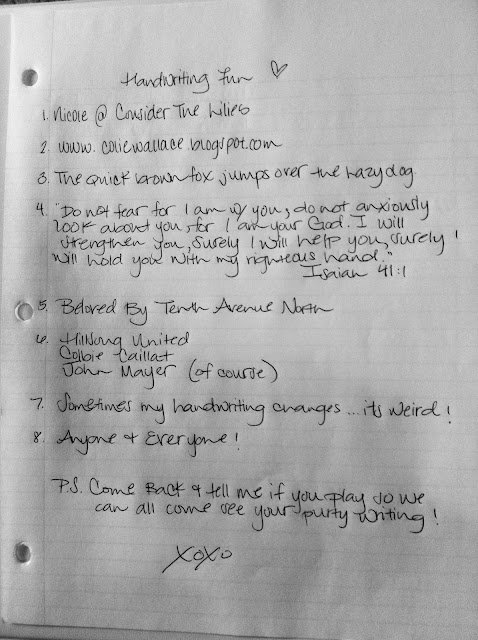 Handwriting Fun ♡
1. Nicole @ Consider The Lilies
2. www.coliewallace.blogspot.com
3. The quick brown fox jumps over the lazy dog
4. "Do not fear for I am w/ you, do not anxiously
look about you, for I am your God. I will
strengthen you, surely I will help you, surely I
will hold you with my righteous hand."
Isaiah 41:1
5. Beloved By Tenth Avenue North
6. Hillsong United
Colbie Caillat
John Mayer (of course)
7. Sometimes my handwriting changes ... its weird!
8. Anyone & Everyone!
P.S. Come Back & tell me if you play so we
can all come see your purty writing!
XOXO